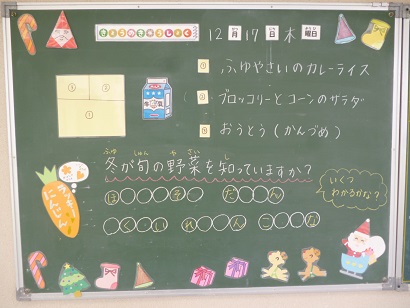 きょうのきゅうしょく
12月17日木曜日
① ふゆやさいのカレーライス
② ブロッコリーとコーンのサラダ
③ おうとう(かんづめ)
③ ②
①
牛乳
冬が旬の野菜を知っていますか?
ふゆ しゅん や さい し
ラッキーにんじん
ほ○○○そ○ だ○○ん
○く○い れ○○ん こ○○な
いくつわかるかな?